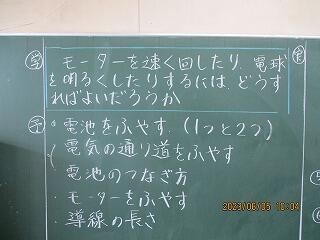 学 モーターを速く回したり、電球
を明るくしたりするには、どうす
ればよいだろうか
予 ・電池をふやす。(1つと2つ)
電気の通り道をふやす
・電池のつなぎ方
・モーターをふやす
・導線の長さ
2023/06/05 10:04